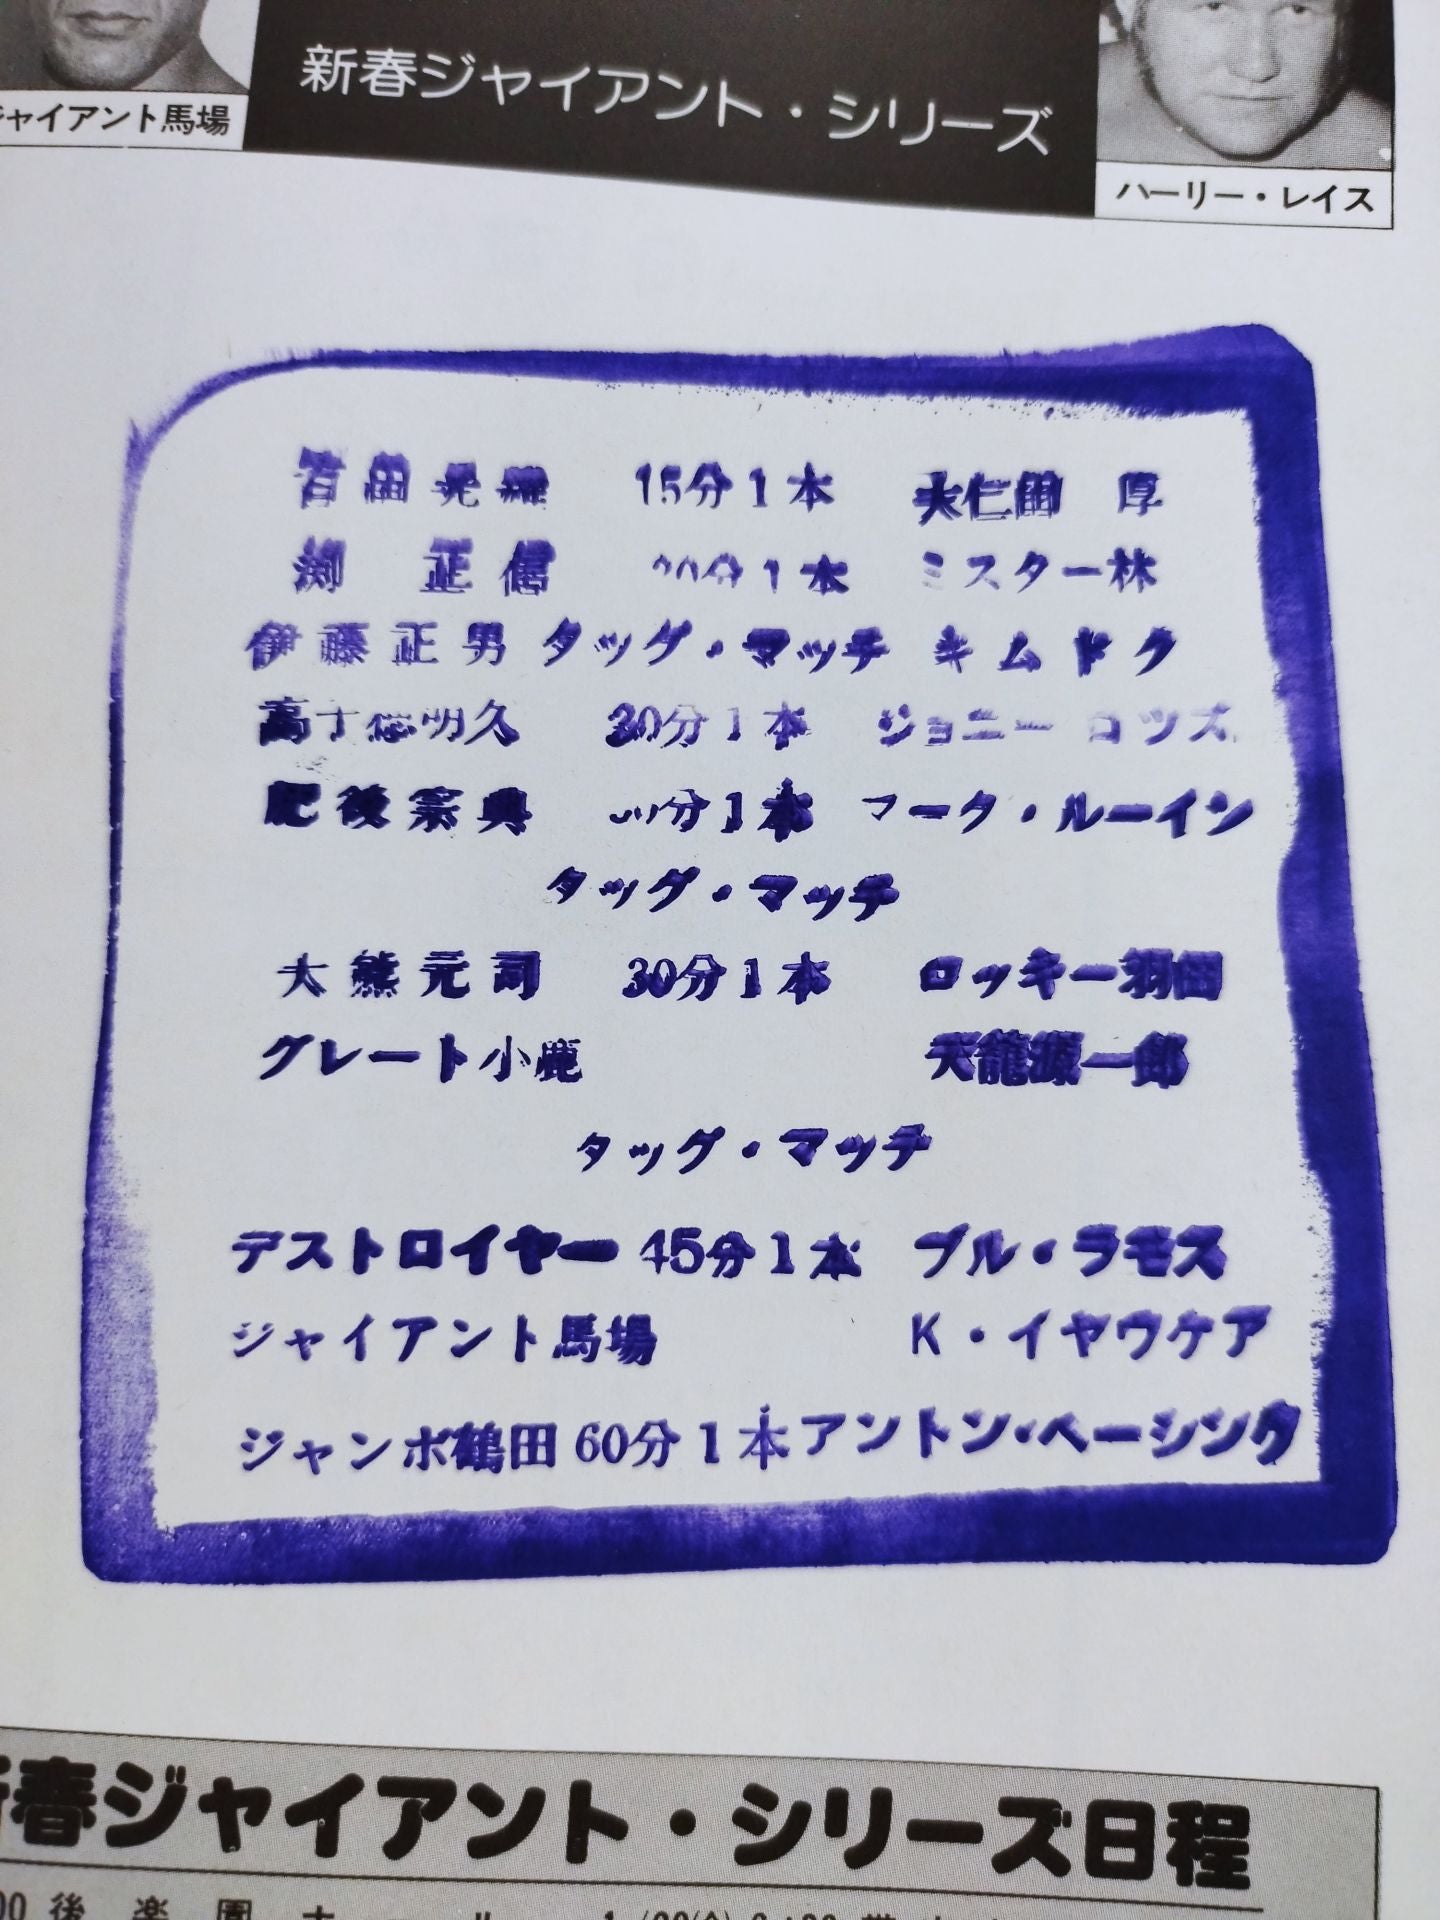 新春ジャイアント・シリーズ
ャイアント馬場
ハーリー・レイス
皆田晃雄 15分1本 大仁田 厚
渕 正信 20分1本 ミスター林
伊藤正男 タッグ・マッチ キムドク
高千穂明久 30分1本 ジョニー コツズ
肥後宗典 分1本 マーク・ルーイン
タッグ・マッチ
大熊元司 30分1本 ロッキー羽田
グレート小鹿 天龍源一郎
タッグ・マッチ
デストロイヤー 45分1本 ブル・ラモス
ジャイアント馬場 K・イヤウケア
ジャンボ鶴田 60分1本 アントン・ヘーシンク
春ジャイアント・シリーズ日程
後楽園